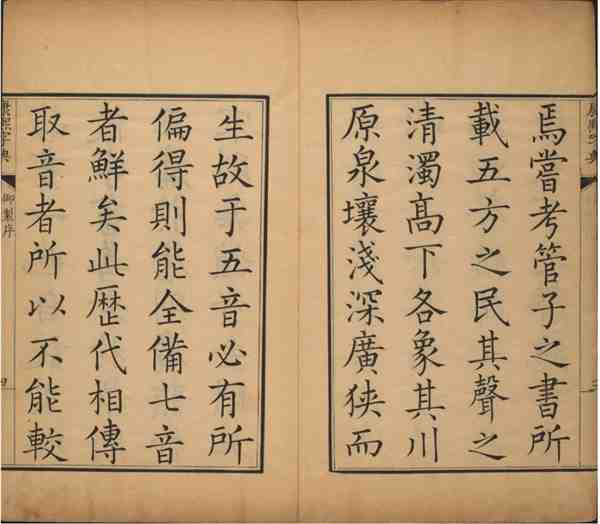 康熙字典
焉嘗考管子之書所
載五方之民其聲之
清濁髙下各象其川
原泉壤淺深廣狹而
生故于五音必有所
偏得則能全備七音
者鮮矣此歷代相傳
取音者所以不能較
康熙字典
御製序